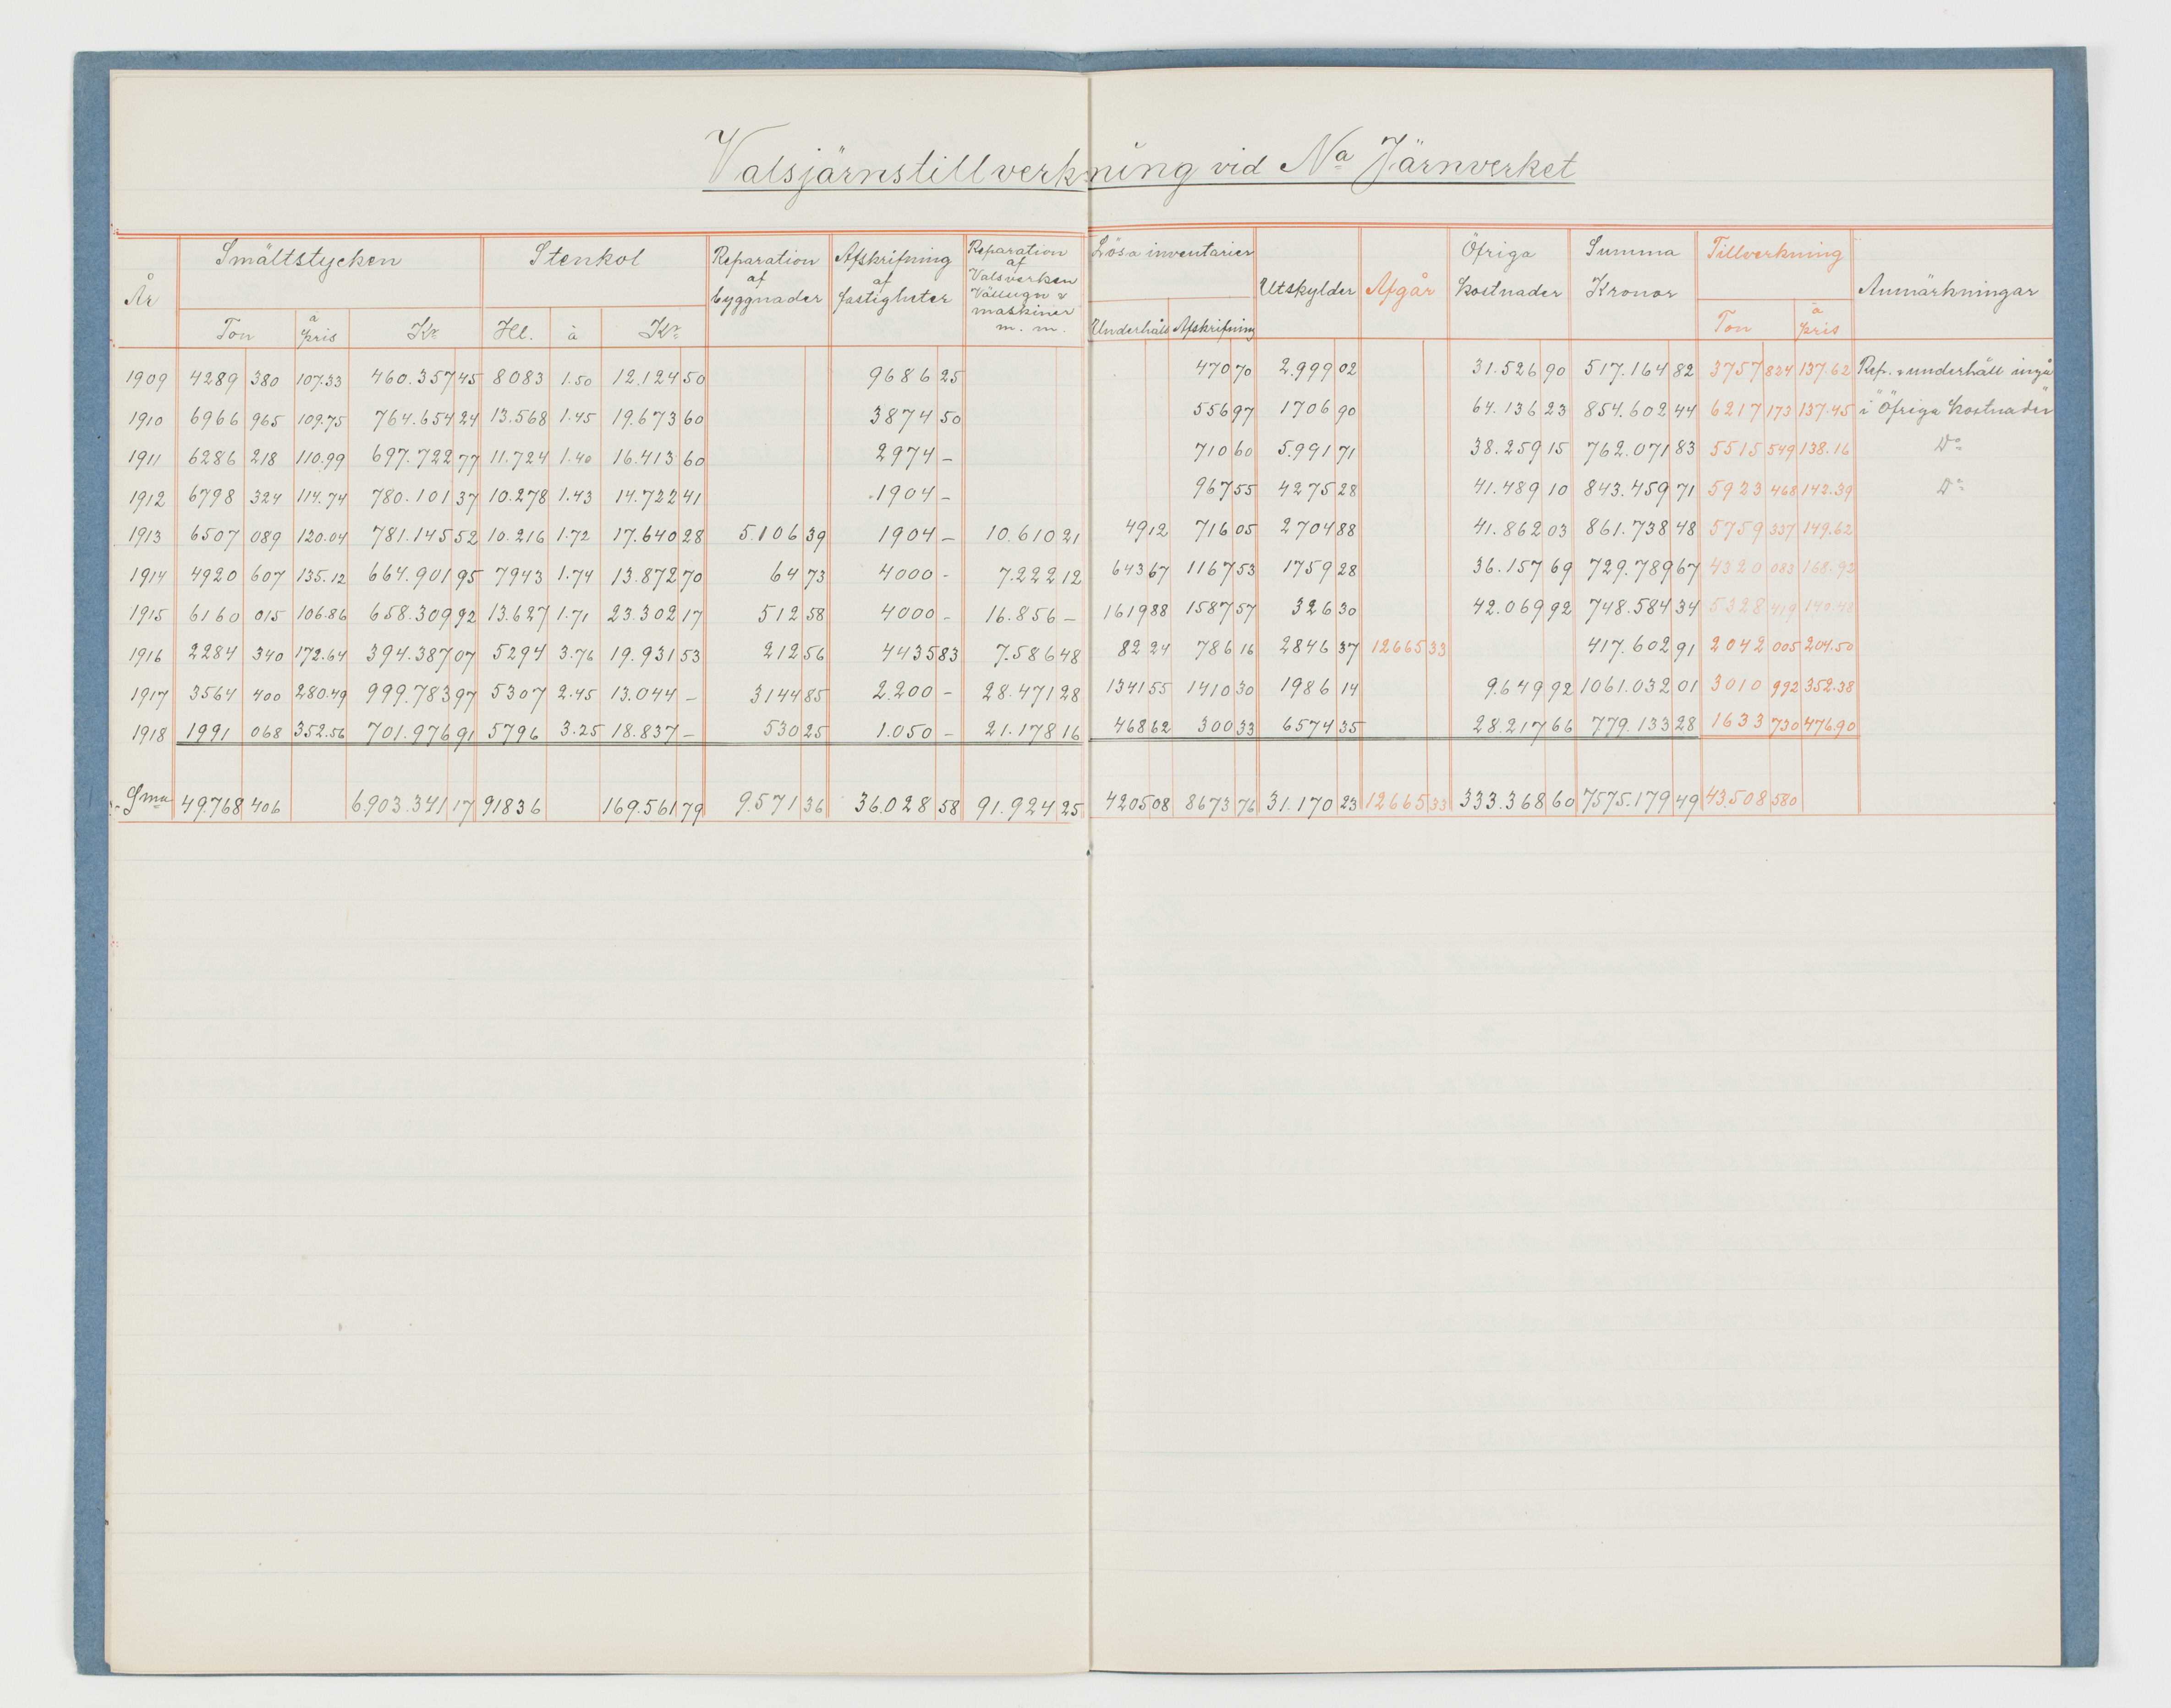 Valsjärnstillverkning vid Na Järnverket
År Smältstycken Stenkol Reparation af byggnader Afskrifning af fastigheter Reparation af Valsverken Vällugn & maskiner m. m. Lösa inventarier Utskylder Afgår Öfriga kostnader Summa Kronor Tillverkning Anmärkningar
Ton à pris Kr Hl. à Kr Underhåll Afskrifning Ton à pris
1909 4289 380 107.33 460.357 45 8083 1.50 12.124 50 9686 25 470 70 2.999 02 31.526 90 517.164 82 3757 824 137.62 Rep. & underhåll ingå
1910 6966 965 109.75 764.654 24 13.568 1.45 19.673 60 3874 50 556 97 1706 90 64.136 23 854.602 44 6217 173 137.45 i "Öfriga kostnader"
1911 6286 218 110.99 697.722 77 11.724 1.40 16.413 60 2974 - 710 60 5.991 71 38.259 15 762.071 83 5515 549 138.16 Do
1912 6798 324 114.74 780.101 37 10.278 1.43 14.722 41 1904 - 967 55 4275 28 41.489 10 843.459 71 5923 468 142.39 Do
1913 6507 089 120.04 781.145 52 10.216 1.72 17.640 28 5.106 39 1904 - 10.610 21 49 12 716 05 2704 88 41.862 03 861.738 48 5759 337 149.62
1914 4920 607 135.12 664.901 95 7943 1.74 13.872 70 64 73 4000 - 7.222 12 643 67 1167 53 1759 28 36.157 69 729.789 67 4320 083 168.92
1915 6160 015 106.86 658.309 92 13.627 1.71 23.302 17 512 58 4000 - 16.856 - 1619 88 1587 57 326 30 42.069 92 748.584 34 5328 419 140.48
1916 2284 340 172.64 394.387 07 5294 3.76 19.931 53 212 56 4435 83 7.586 48 82 24 786 16 2846 37 12665 33 417.602 91 2042 005 204.50
1917 3564 400 280.49 999.783 97 5307 2.45 13.044 - 3144 85 2.200 - 28.471 28 1341 55 1410 30 1986 14 9.649 92 1061.032 01 3010 992 352.38
1918 1991 068 352.56 701.976 91 5796 3.25 18.837 - 530 25 1.050 - 21.178 16 468 62 300 33 6574 35 28.217 66 779.133 28 1633 730 476.90
Sma 49.768 406 6903.341 17 91836 169.561 79 9.571 36 36.028 58 91.924 25 4205 08 8673 76 31.170 23 12665 33 333.368 60 7575.179 49 43.508 580